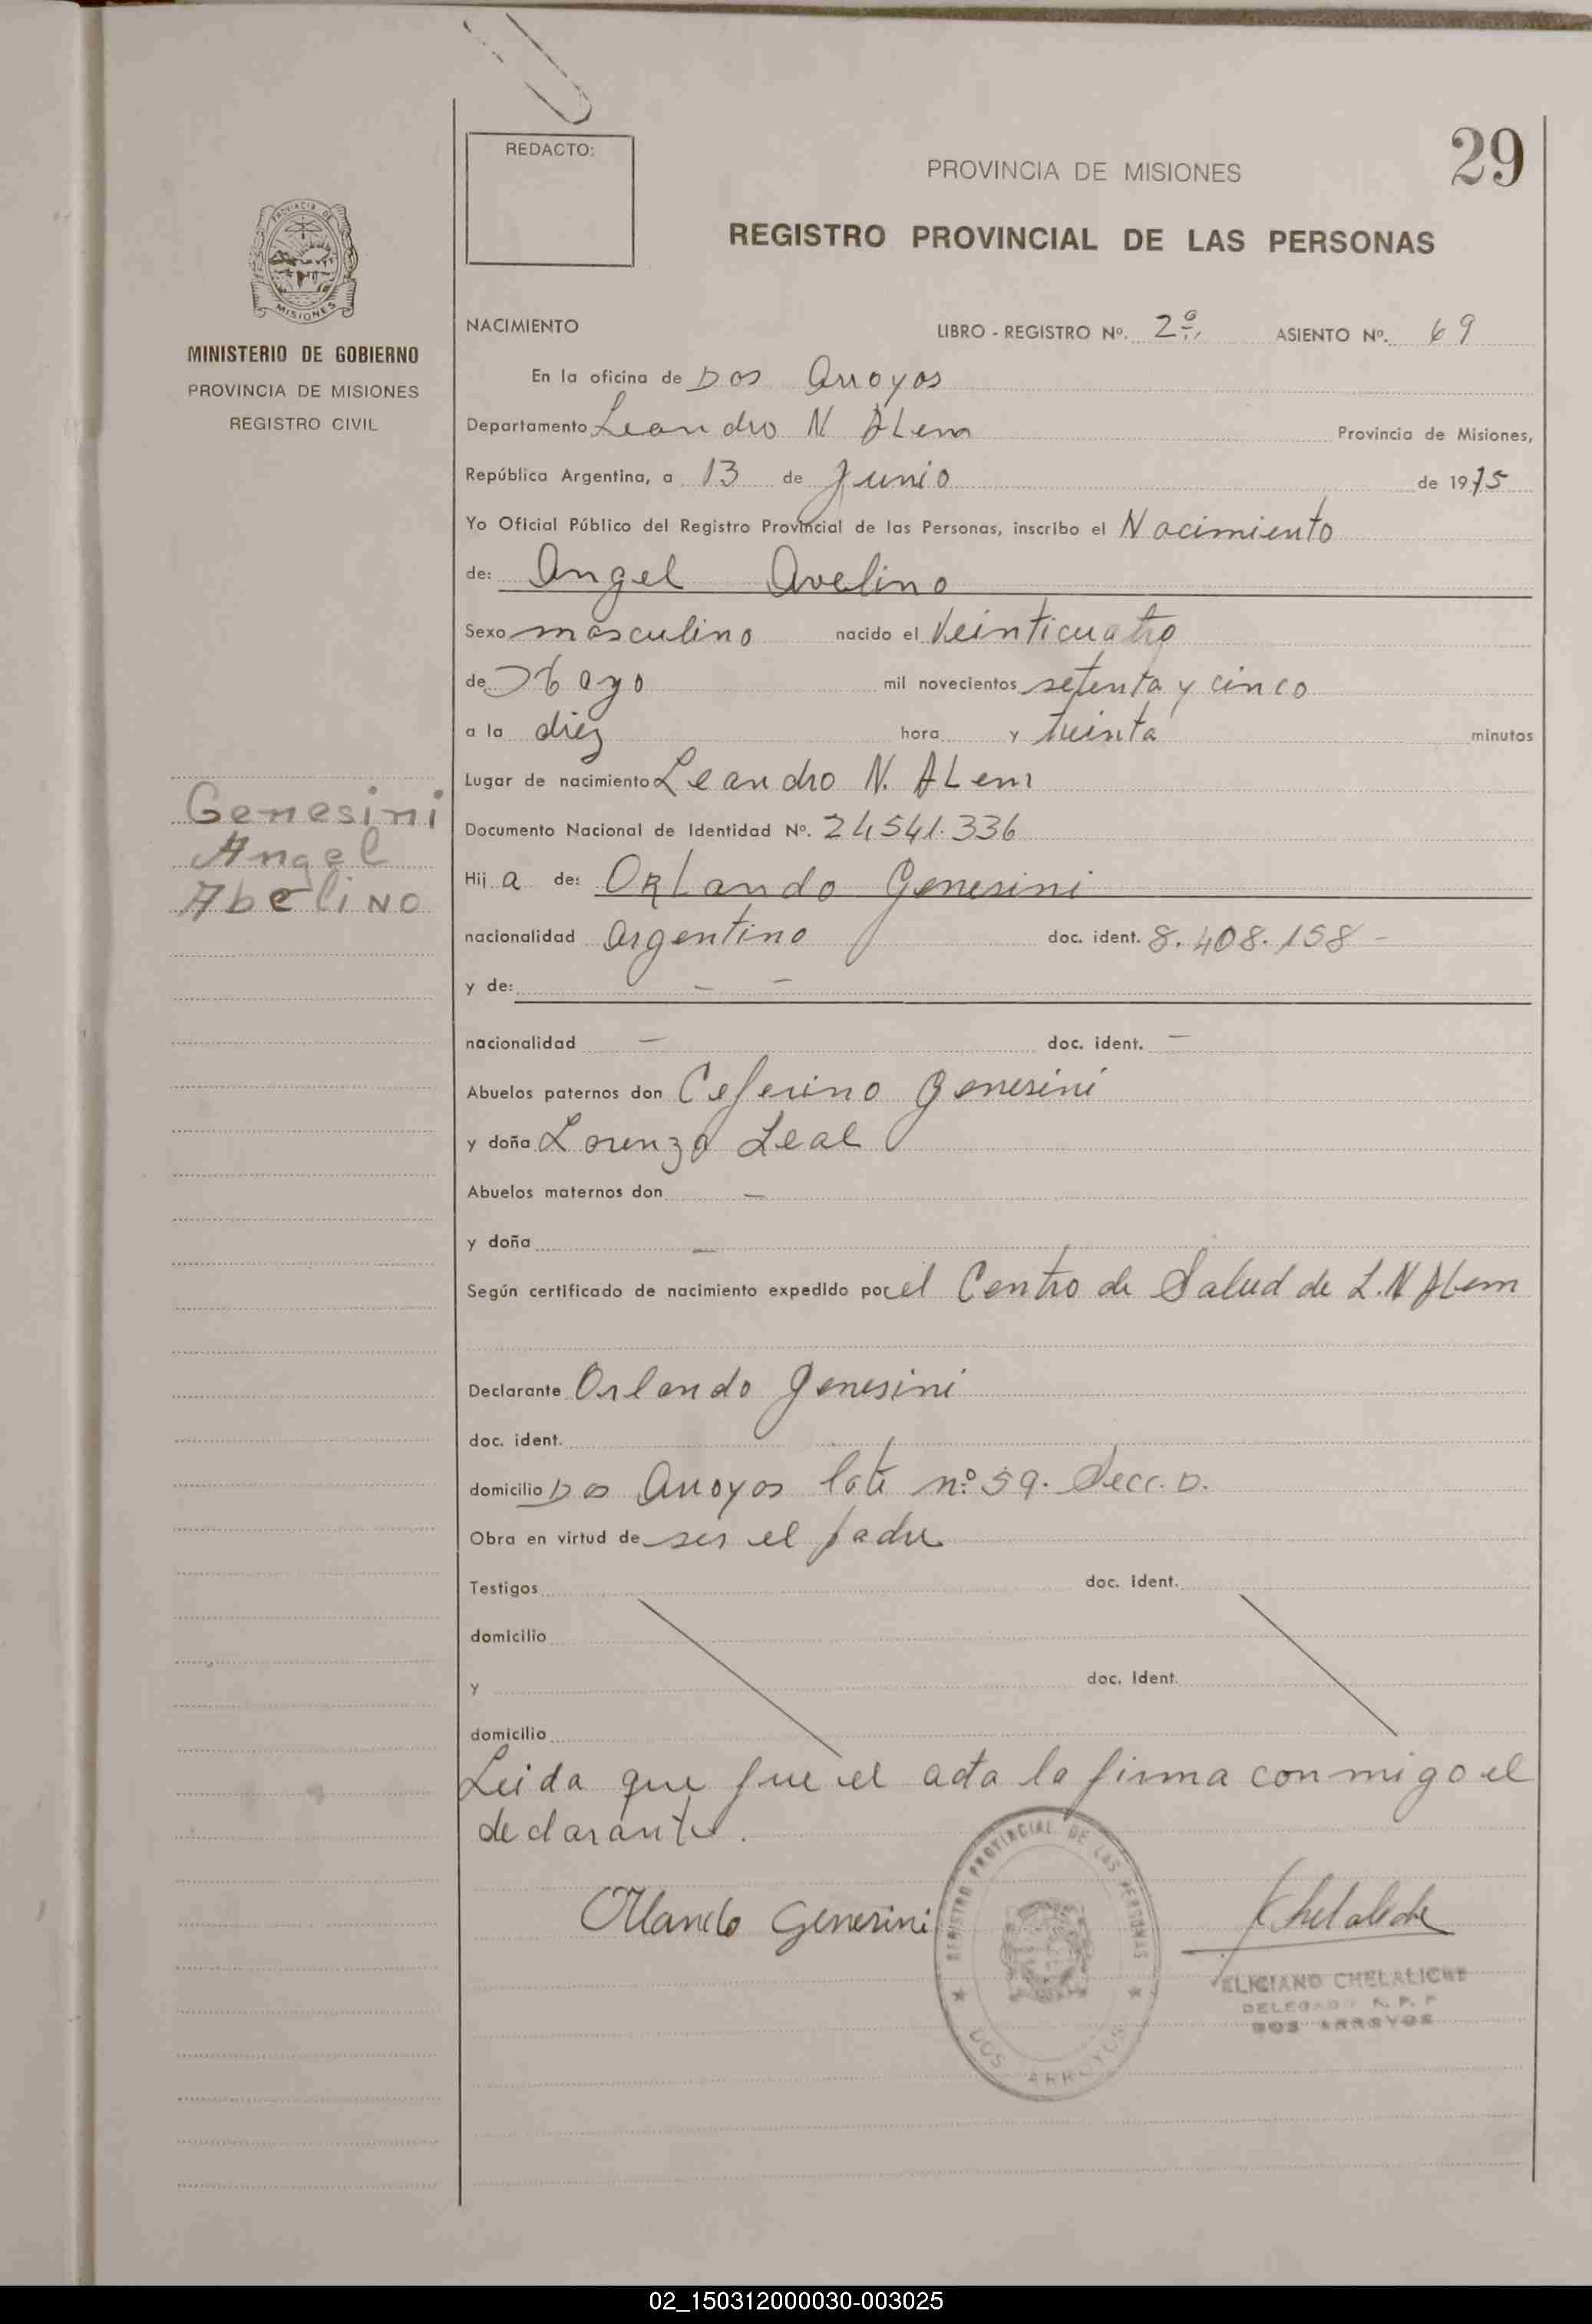 29
REDACTO:
PROVINCIA DE MISIONES
REGISTRO PROVINCIAL DE LAS PERSONAS
PROVINCIA DE
MISIONES
MINISTERIO DE GOBIERNO
PROVINCIA DE MISIONES
REGISTRO CIVIL
NACIMIENTO LIBRO - REGISTRO Nº. 2º ASIENTO Nº. 69
En la oficina de Dos Arroyos
Departamento Leandro N ALem Provincia de Misiones,
República Argentina, a 13 de Junio de 1975
Yo Oficial Público del Registro Provincial de las Personas, inscribo el Nacimiento
de: Angel Avelino
Sexo masculino nacido el Veinticuatro
de Mayo mil novecientos setenta y cinco
a la diez hora y treinta minutos
Lugar de nacimiento Leandro N. ALem
Genesini
Angel
Abelino
Documento Nacional de Identidad Nº. 24541.336
Hij a de: ORLando Genesini
nacionalidad argentino doc. ident. 8.408.158 -
y de: - -
nacionalidad - doc. ident. -
Abuelos paternos don Ceferino Genesini
y doña Lorenza Leal
Abuelos maternos don -
y doña -
Según certificado de nacimiento expedido por el Centro de Salud de L.N ALem
Declarante Orlando Genesini
doc. ident.
domicilio Dos Arroyos lote nº 59. Secc. D.
Obra en virtud de ser el padre
Testigos doc. ident.
domicilio
y doc. Ident.
domicilio
Leida que fue el acta la firma conmigo el
declarante.
Orlando Genesini
REGISTRO PROVINCIAL DE LAS PERSONAS
DOS ARROYOS
Chelaliche
ELICIANO CHELALICHE
DELEGADO R. P. P
DOS ARROYOS
02_150312000030-003025